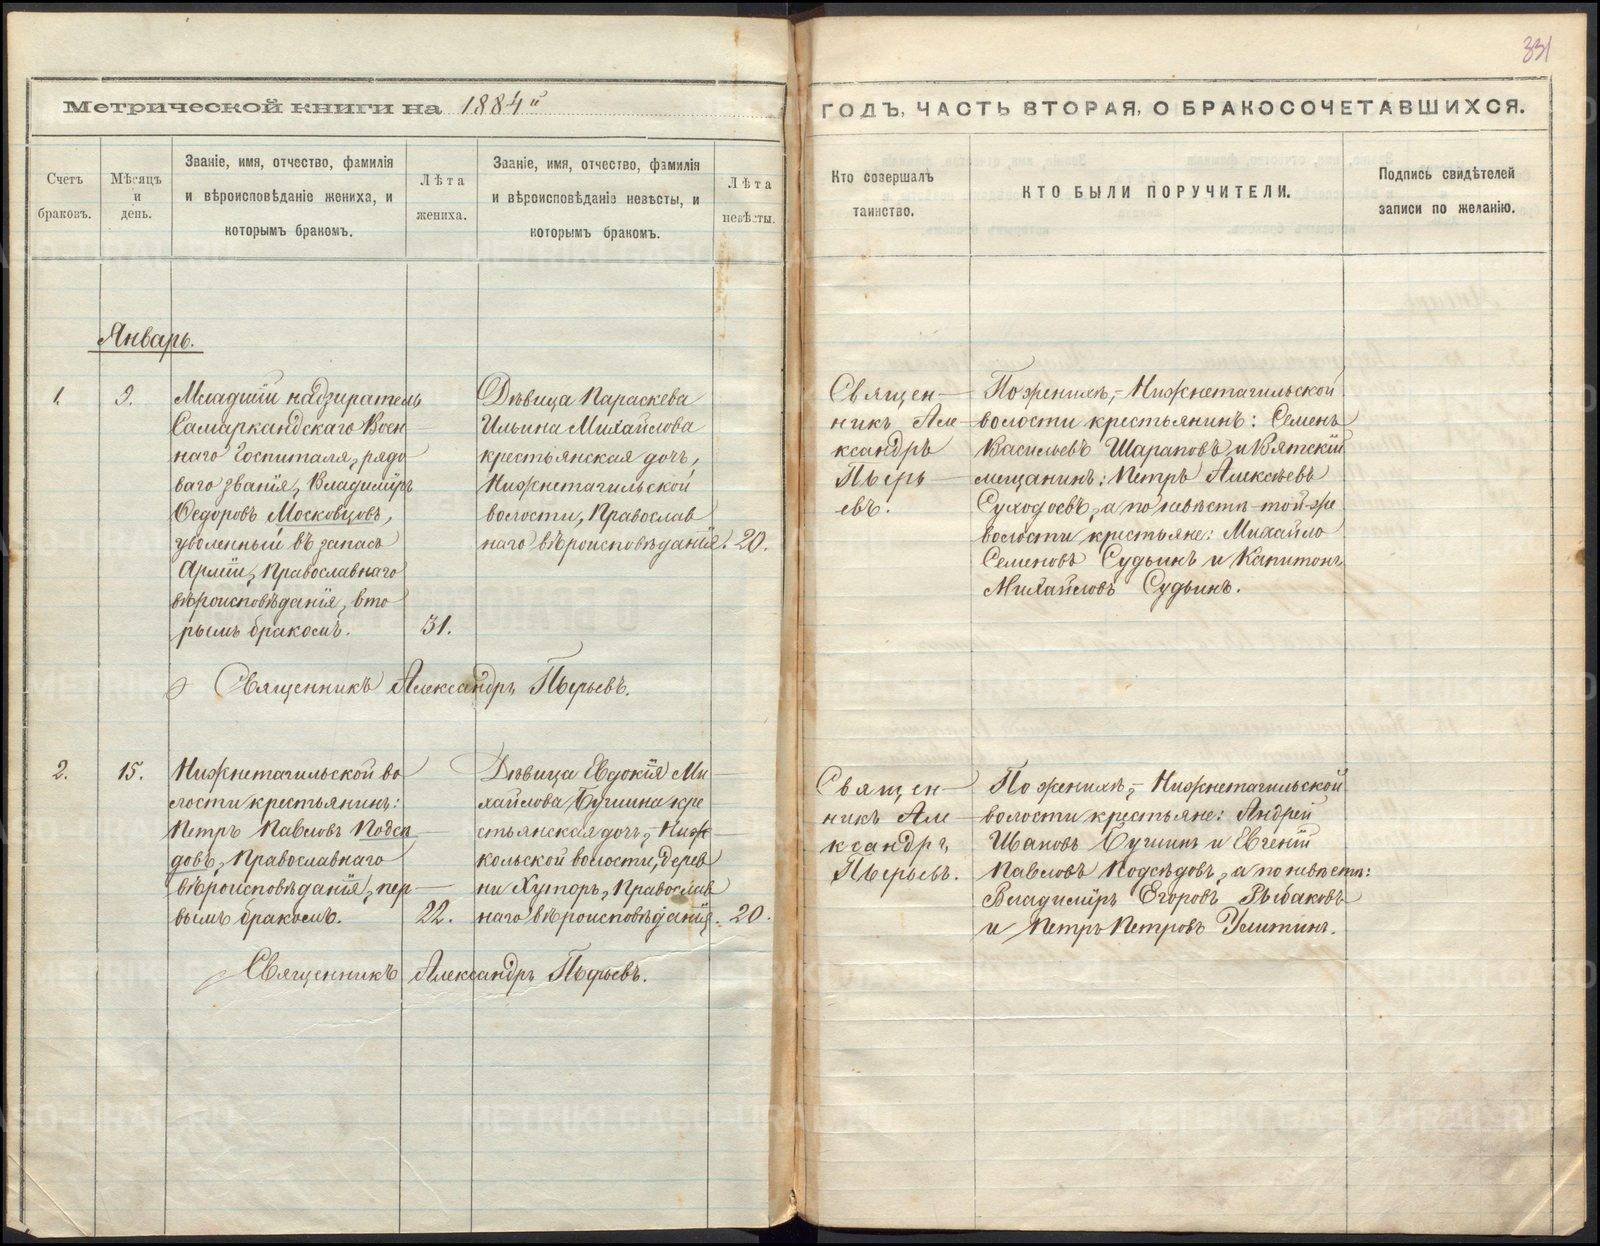 331
Метрической книги на 1884й
ГОДЪ, ЧАСТЬ ВТОРАЯ, О БРАКОСОЧЕТАВШИХСЯ.
Счетъ
браковъ.
Мѣсяцъ
и
день.
Званіе, имя, отчество, фамилія
и вѣроисповѣданіе жениха, и
которымъ бракомъ.
Лѣта
жениха.
Званіе, имя, отчество, фамилія
и вѣроисповѣданіе невѣсты, и
которымъ бракомъ.
Лѣта
невѣсты.
Кто совершалъ
таинство.
КТО БЫЛИ ПОРУЧИТЕЛИ.
Подпись свидѣтелей
записи по желанію.
Январь.
1.
9.
Младшій надзиратель
Самаркандскаго Воен
наго Госпиталя, рядо
ваго званія, Владиміръ
Ѳедоровъ Московцовъ,
уволенный въ запасъ
Арміи, Православнаго
вѣроисповѣданія, вто
рымъ бракомъ.
31.
Дѣвица Параскева
Ильина Михайлова
крестьянская дочь,
Нижнетагильской
волости, Православ
наго вѣроисповѣданія.
20.
Священ-
никъ Але
ксандръ
Пырь
евъ.
По женихѣ,- Нижнетагильской
волости крестьянинъ: Семенъ
Васильевъ Шараповъ и Вятскій
мещанинъ: Петръ Алексѣевъ
Суходоевъ, а по невѣстѣ той-же
волости крестьяне: Михайло
Семеновъ Судьинъ и Капитонъ
Михайловъ Судьинъ.
Священникъ Александръ Пырьевъ.
2.
15.
Нижнетагильской во
лости крестьянинъ:
Петръ Павловъ Подсѣ
довъ, Православнаго
вѣроисповѣданія, пер
вымъ бракомъ.
22.
Дѣвица Евдокія Ми
хайлова Бушина кре
стьянская дочь, Ниж
кольской волости, дерев
ни Хуторъ, Православ
наго вѣроисповѣданія.
20.
Священ-
никъ Але
ксандръ
Пырьевъ.
По женихѣ,- Нижнетагильской
волости крестьяне: Андрей
Ивановъ Бушинъ и Евгеній
Павловъ Подсѣдовъ, а по невѣстѣ:
Владиміръ Егоровъ Рыбаковъ
и Петръ Петровъ Улитинъ.
Священникъ Александръ Пырьевъ.
METRIKI.GASO-URAL.RU